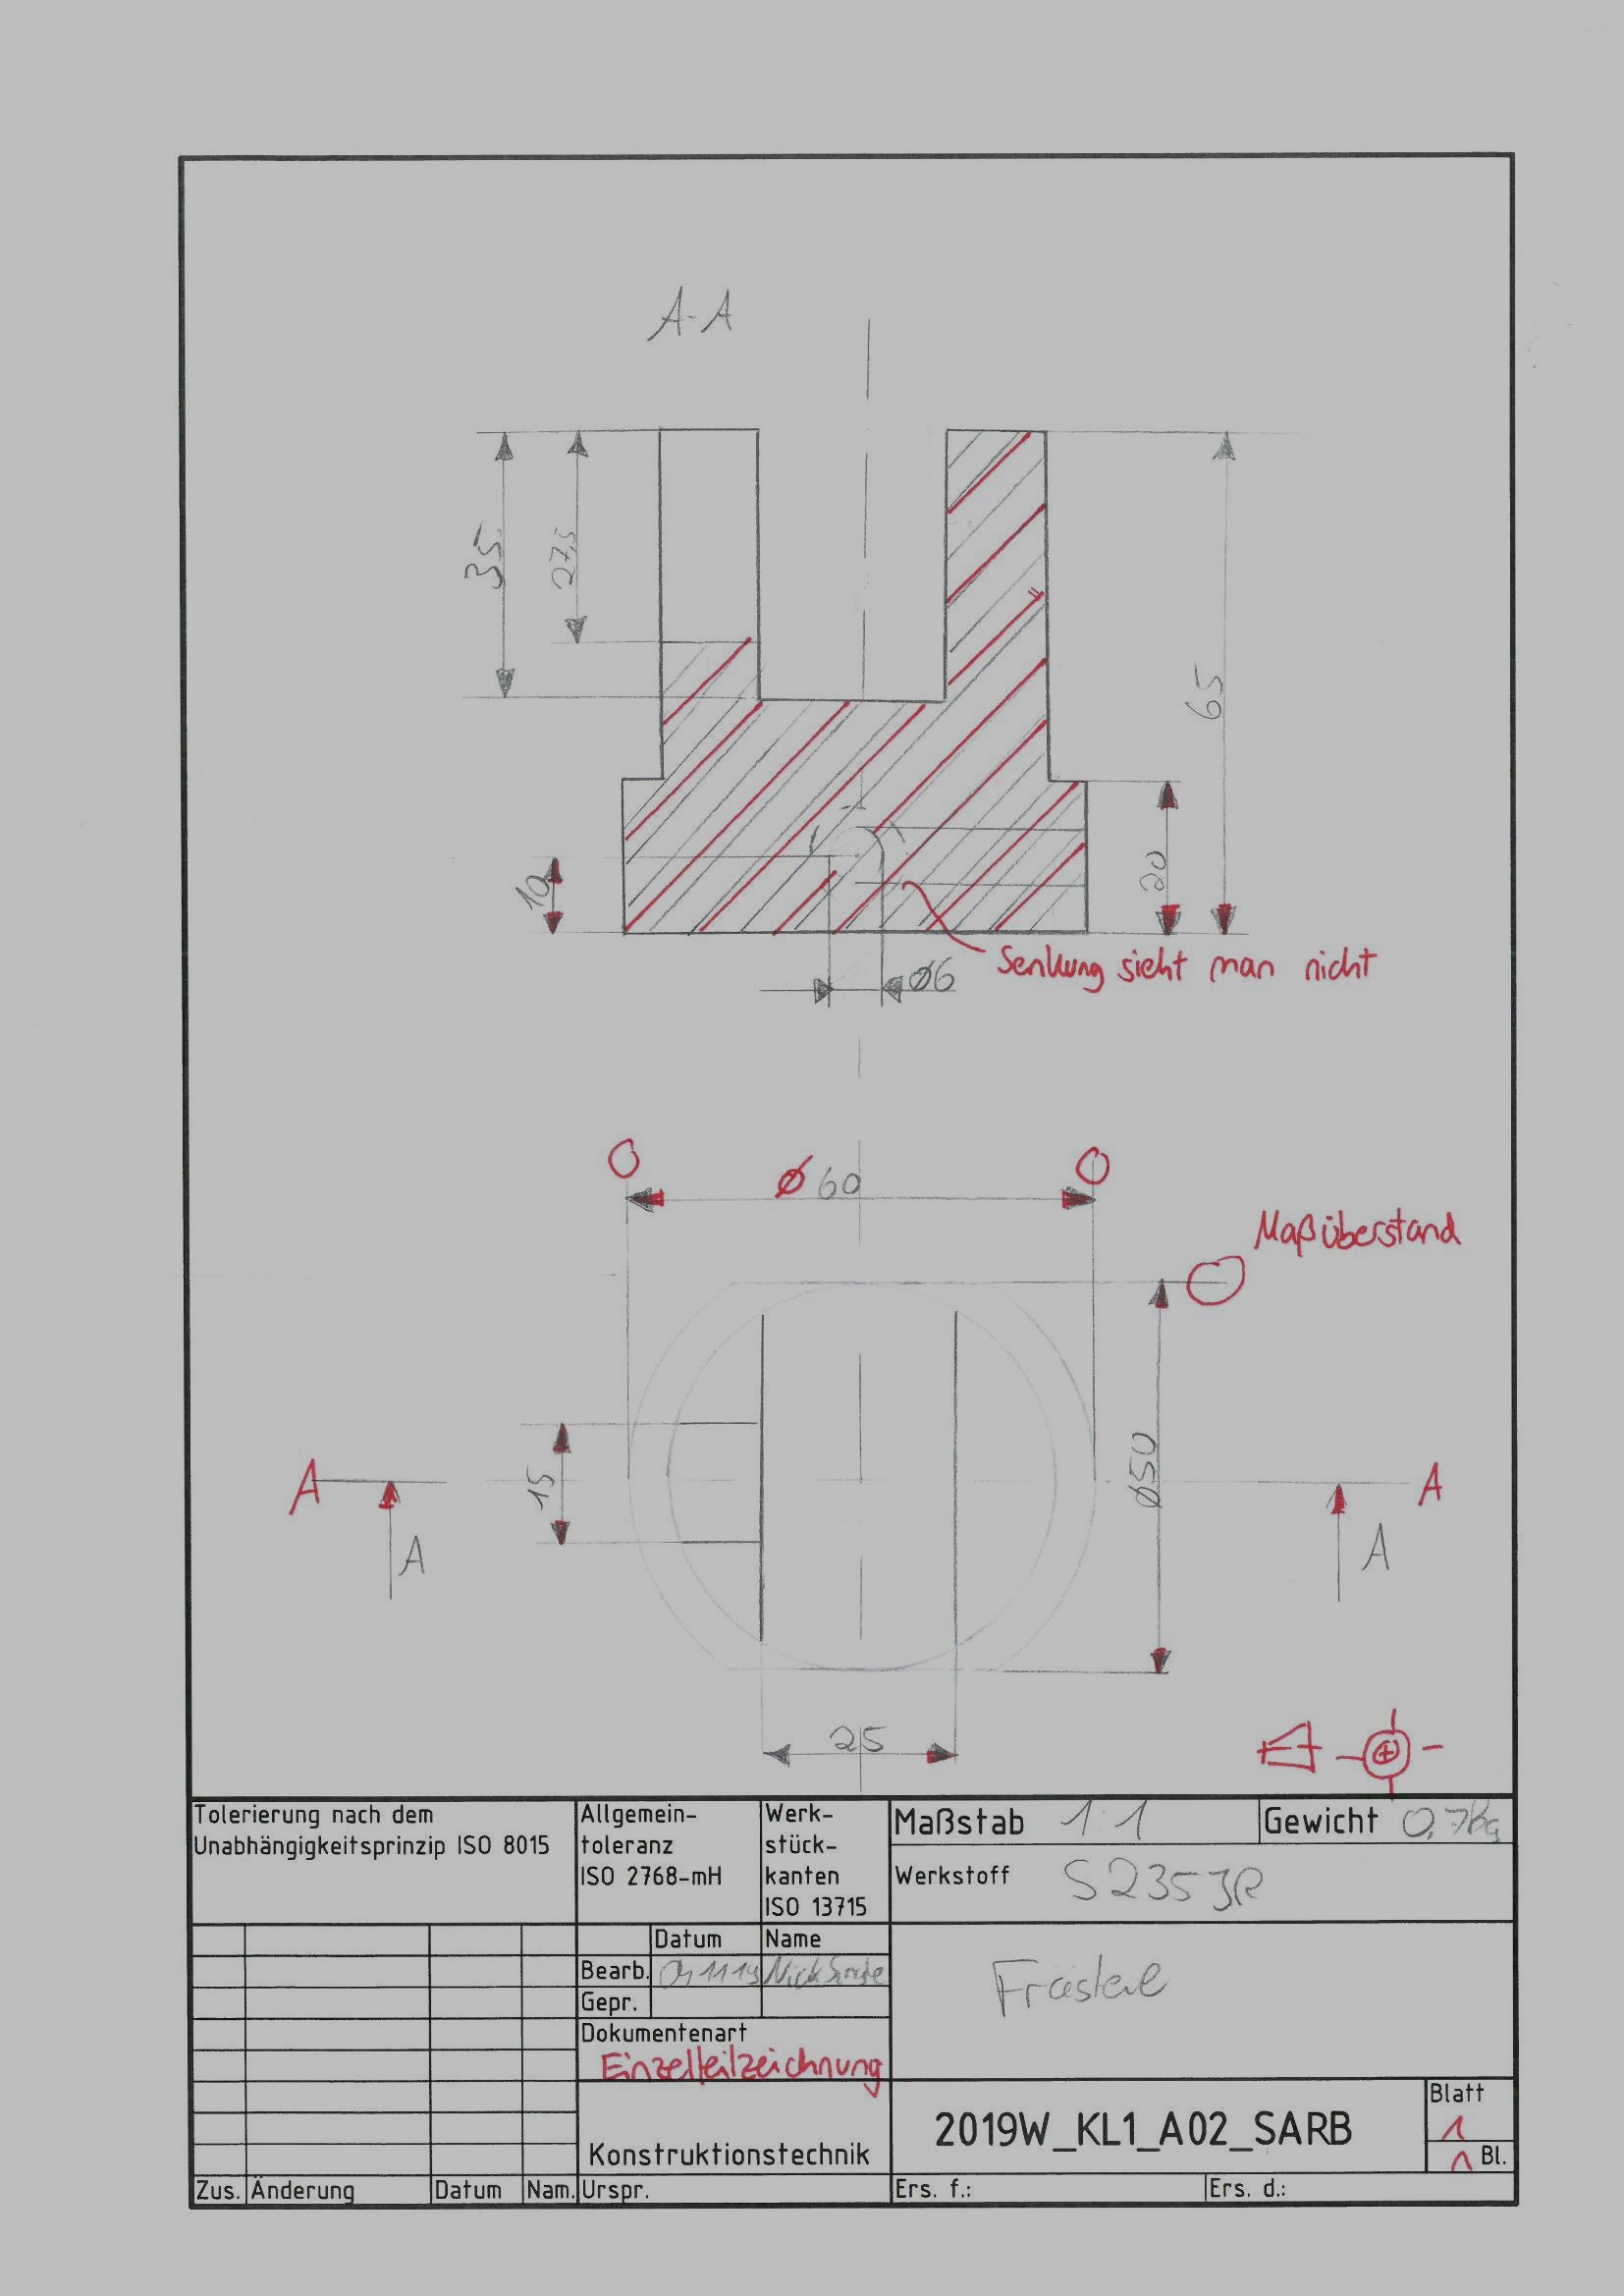 A-A
35
27,5
65
10
20
Ø6
Senkung sieht man nicht
Ø 60
Maßüberstand
15
Ø50
A
A
A
A
25
Tolerierung nach dem
Unabhängigkeitsprinzip ISO 8015
Allgemein-
toleranz
ISO 2768-mH
Werk-
stück-
kanten
ISO 13715
Maßstab 1:1
Gewicht 0,7kg
Werkstoff S235JR
Datum Name
Bearb. Nick
Gepr.
Dokumentenart
Einzelteilzeichnung
Konstruktionstechnik
2019W_KL1_A02_SARB
Blatt
1
1 Bl.
Zus. Änderung Datum Nam. Urspr.
Ers. f.: Ers. d.: